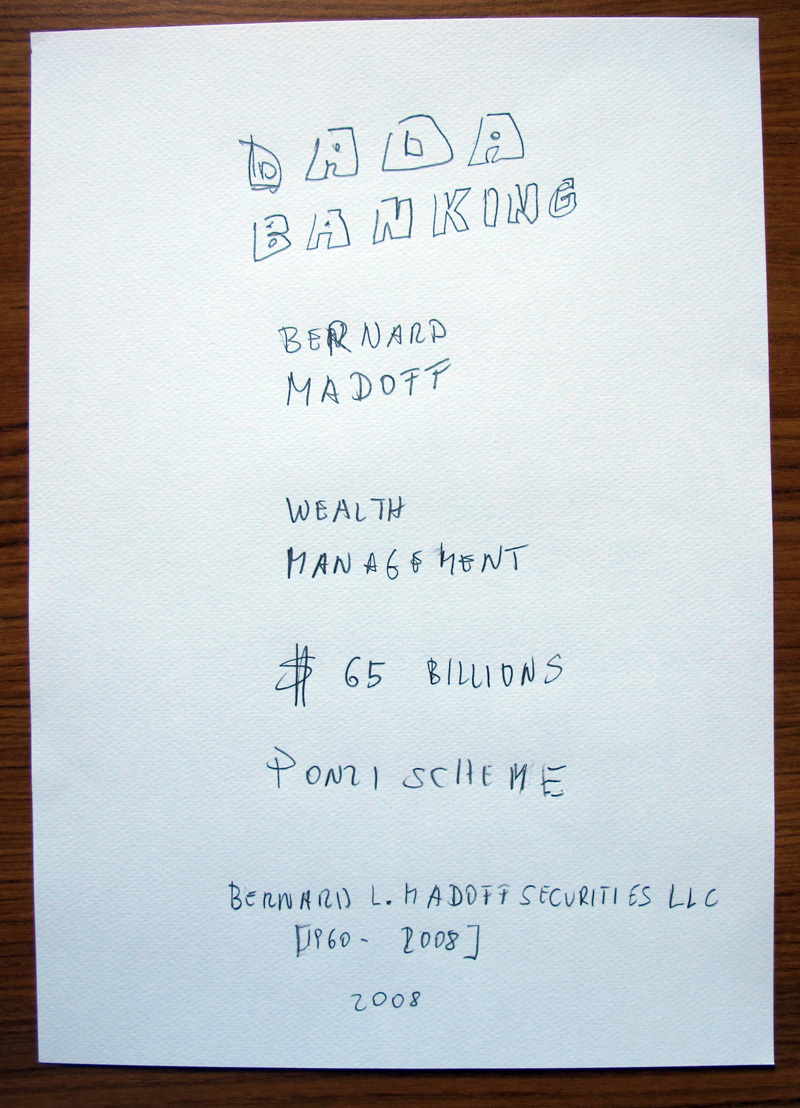 DADA
BANKING
BERNARD
MADOFF
WEALTH
MANAGEMENT
$ 65 BILLIONS
PONZI SCHEME
BERNARD L. MADOFF SECURITIES LLC
[1960 - 2008]
2008